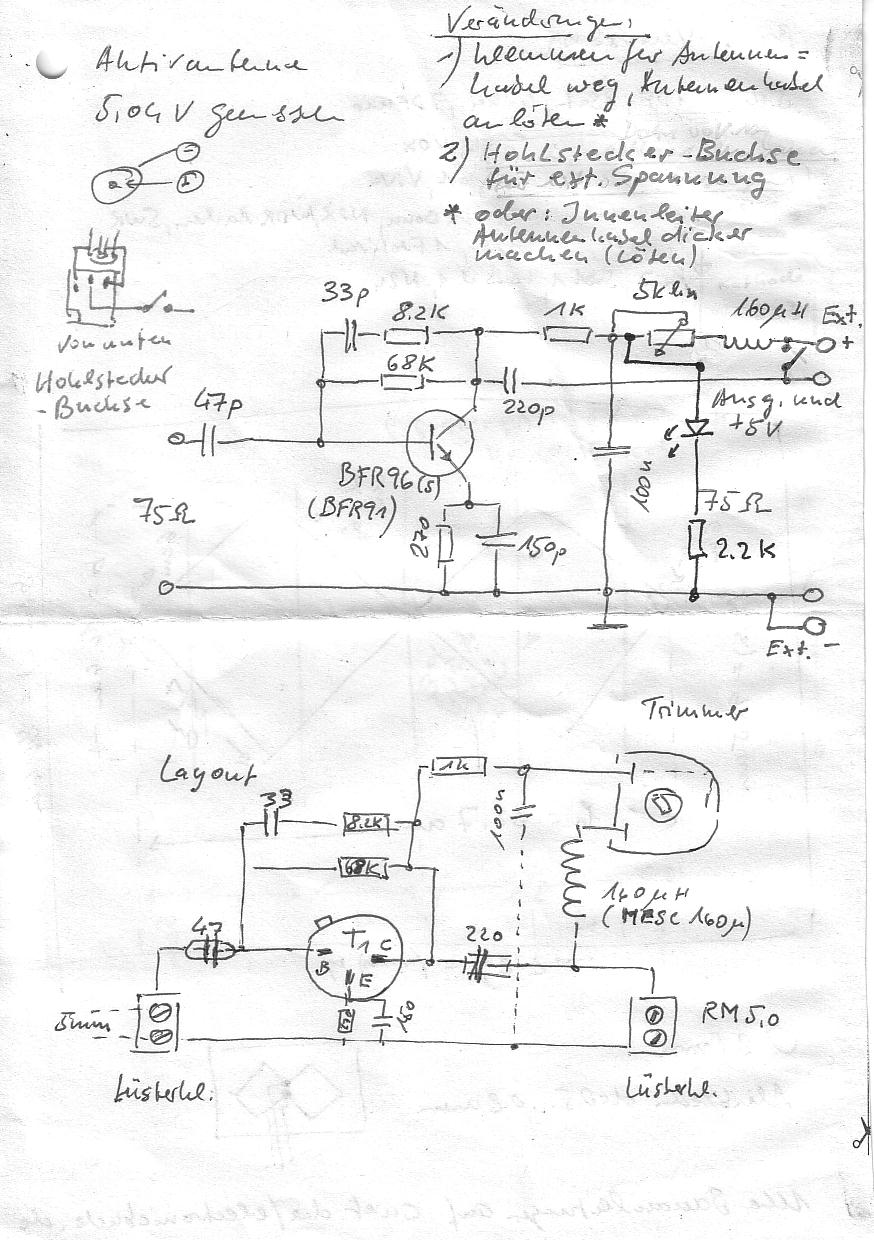 Aktivantenne
5,04V gemessen
Veränderungen:
1) Klemmen für Antennen=
kabel weg, Antennenkabel
anlöten *
2) Hohlstecker-Buchse
für ext. Spannung
* oder: Innenleiter
Antennenkabel dicker
machen (löten)
von unten
Hohlstecker
-Buchse
33p
8.2K
1K
5k lin
160µH
Ext.
+
68K
47p
220p
Ausg. und
+5V
BFR96(S)
(BFR91)
100n
75Ω
75Ω
270
150p
2.2K
Ext. -
Trimmer
Layout
1k
33
8.2K
100n
68K
140µH
(MESC 160µ)
47
T1
C
B
E
220
150
5mm
RM5,0
Lüsterkl.
Lüsterkl.